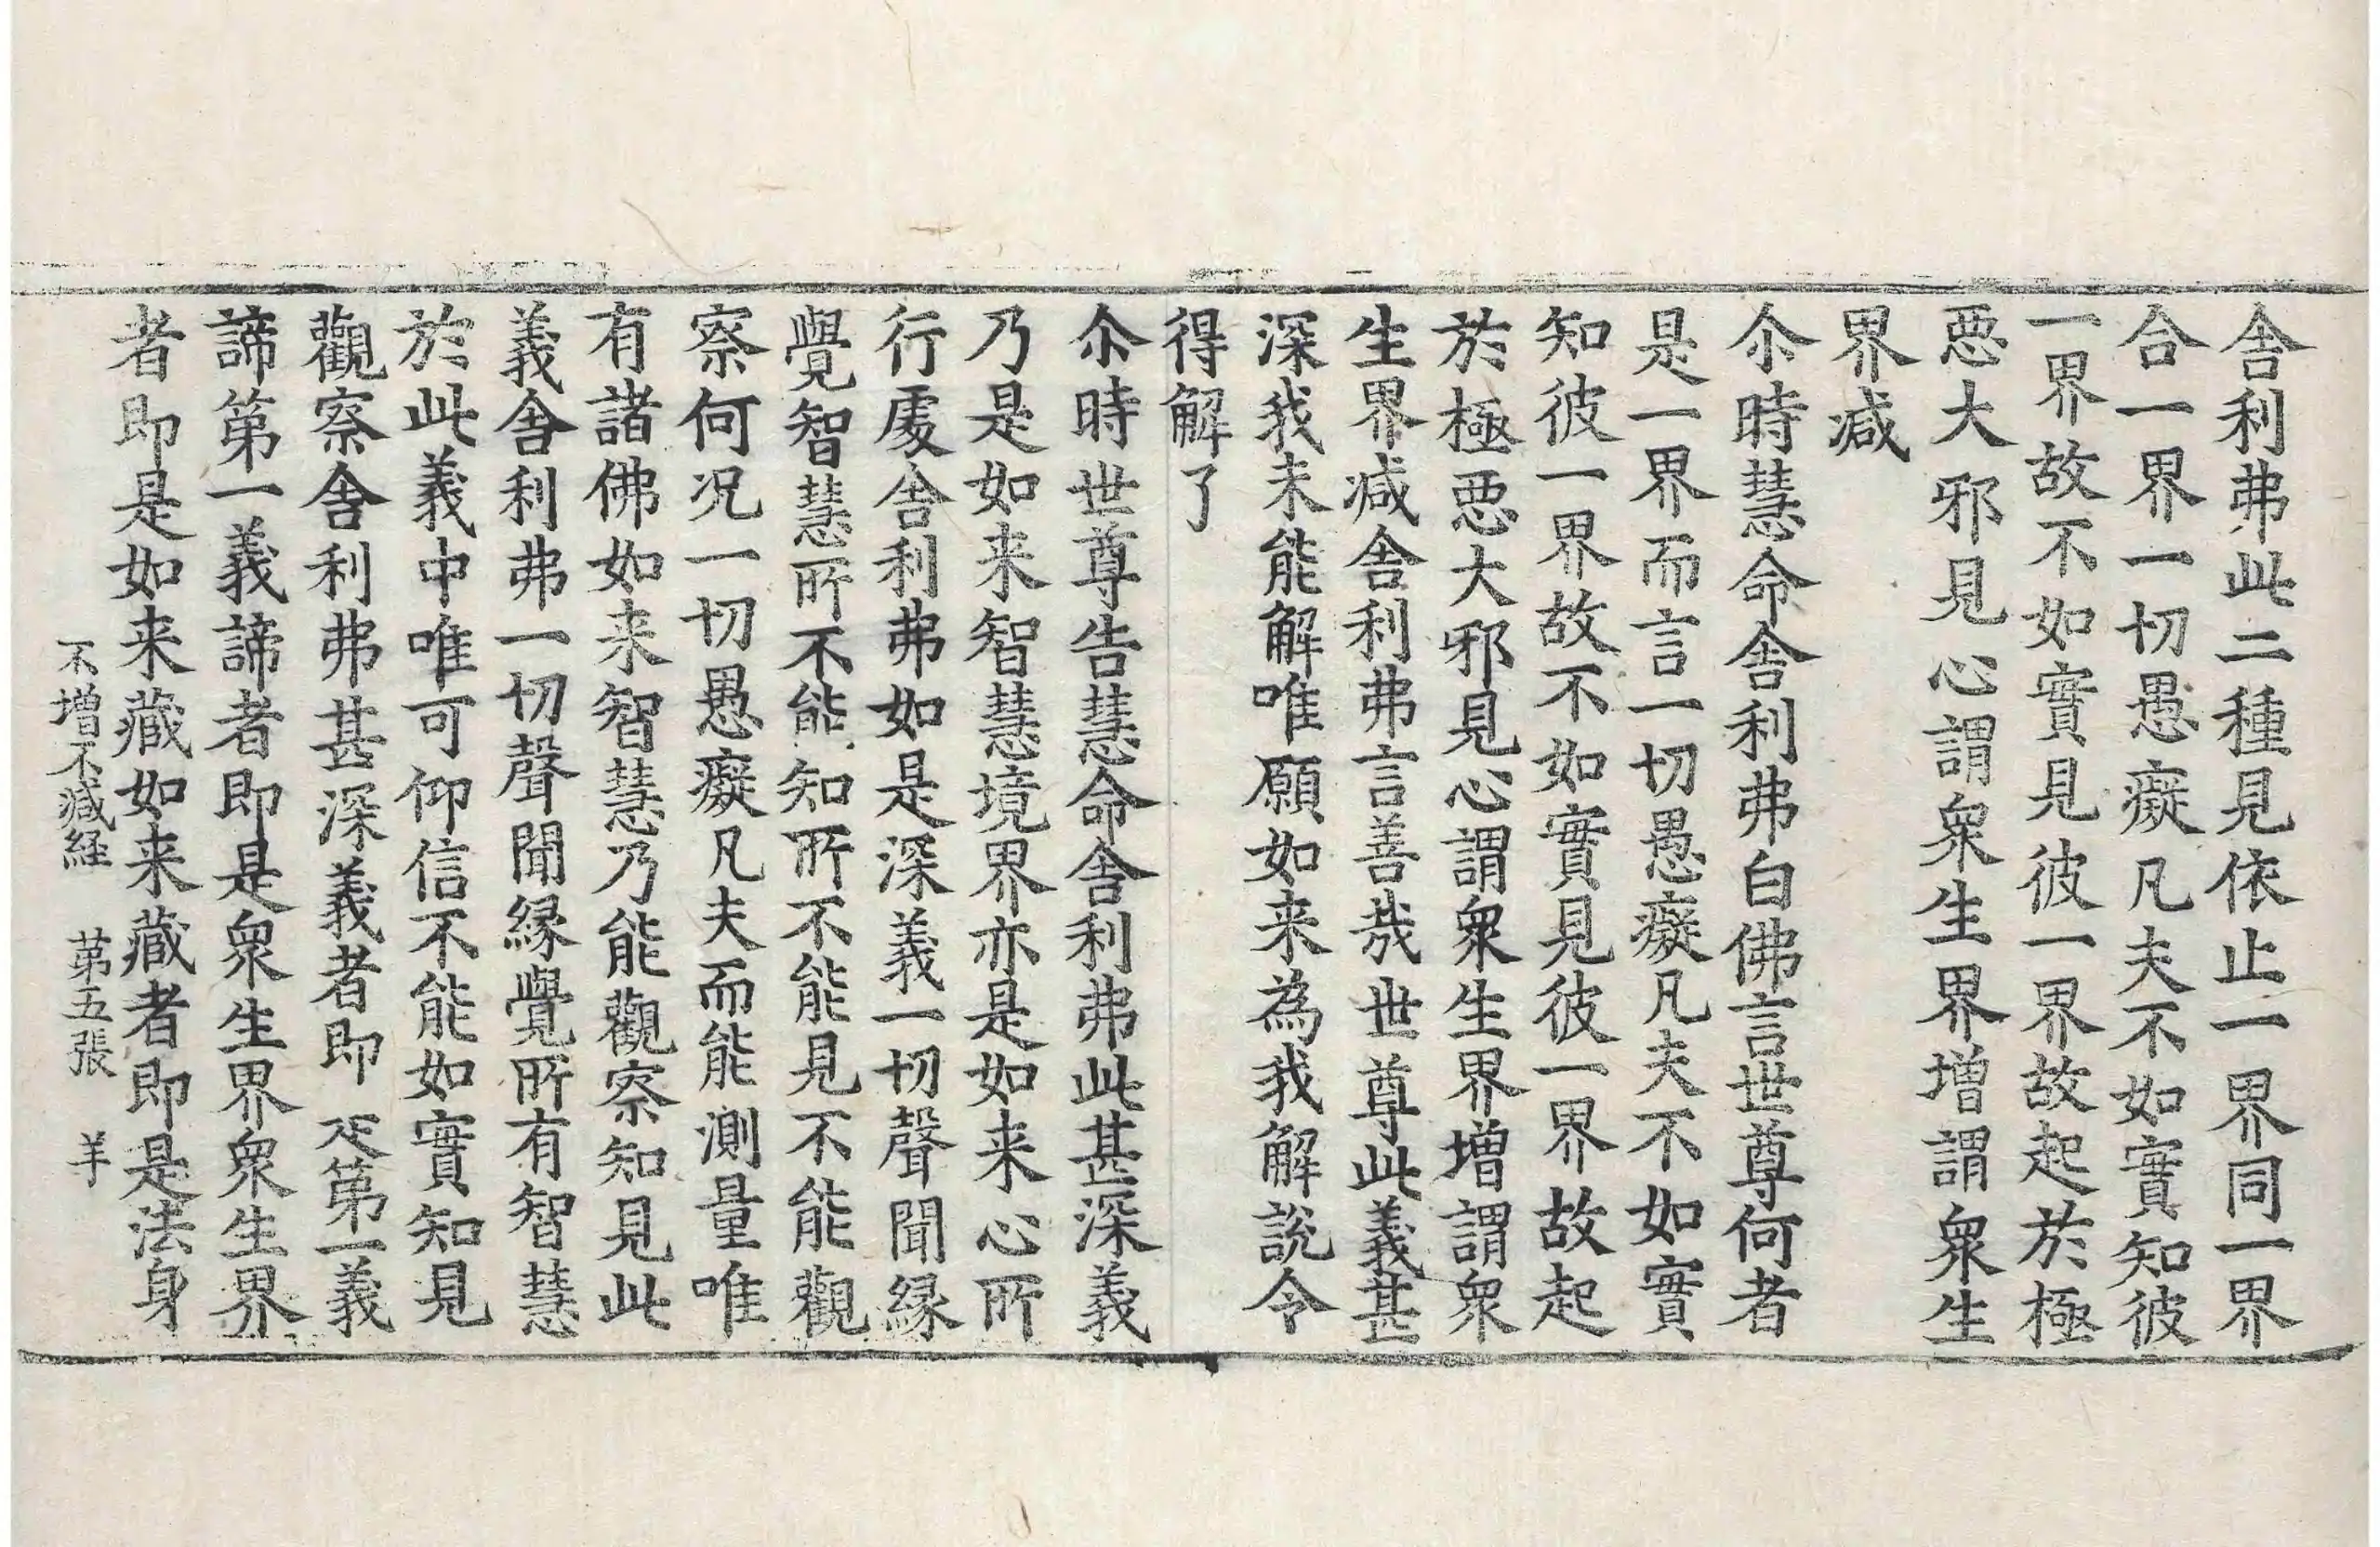 舎利弗此二種見依止一界同一界
合一界一切愚癡凡夫不如實知彼
一界故不如實見彼一界故起於極
惡大邪見心謂衆生界増謂衆生
界减
尒時慧命舎利弗白佛言世尊何者
是一界而言一切愚癡凡夫不如實
知彼一界故不如實見彼一界故起
於極惡大邪見心謂衆生界増謂衆
生界减舎利弗言善哉世尊此義甚
深我未能解唯願如来為我解說令
得解了
尒時世尊告慧命舎利弗此甚深義
乃是如来智慧境界亦是如来心所
行處舎利弗如是深義一切聲聞縁
覺智慧所不能知所不能見不能觀
察何况一切愚癡凡夫而能測量唯
有諸佛如来智慧乃能觀察知見此
義舎利弗一切聲聞縁覺所有智慧
於此義中唯可仰信不能如實知見
觀察舎利弗甚深義者即是第一義
諦第一義諦者即是衆生界衆生界
者即是如来藏如来藏者即是法身
不増不减経 第五張 羊